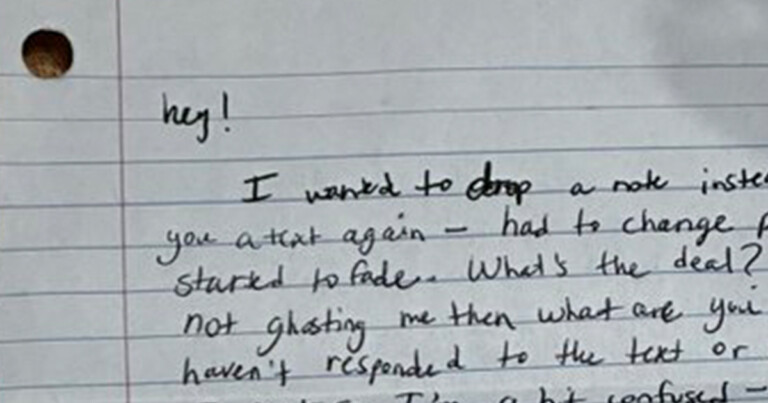 hey!
I wanted to drop a note inste
you a text again – had to change p
started to fade. What's the deal?
not ghosting me then what are you
haven't responded to the text or
I'm a bit confused –